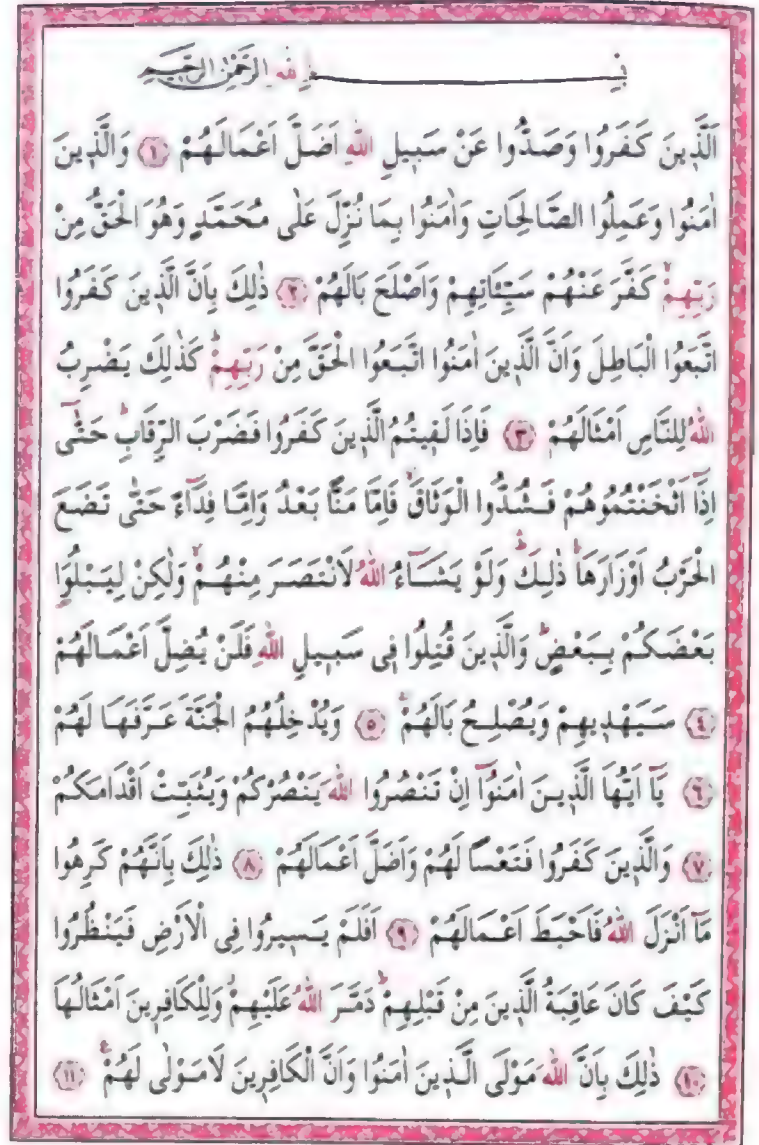 بِسْمِ اللهِ الرَّحْمٰنِ الرَّحِيمِ
اَلَّذِينَ كَفَرُوا وَصَدُّوا عَنْ سَبِيلِ اللهِ اَضَلَّ اَعْمَالَهُمْ ﴿١﴾ وَالَّذِينَ
اٰمَنُوا وَعَمِلُوا الصَّالِحَاتِ وَاٰمَنُوا بِمَا نُزِّلَ عَلٰى مُحَمَّدٍ وَهُوَ الْحَقُّ مِنْ
رَبِّهِمْۙ كَفَّرَ عَنْهُمْ سَيِّـَٔاتِهِمْ وَاَصْلَحَ بَالَهُمْ ﴿٢﴾ ذٰلِكَ بِاَنَّ الَّذِينَ كَفَرُوا
اتَّبَعُوا الْبَاطِلَ وَاَنَّ الَّذِينَ اٰمَنُوا اتَّبَعُوا الْحَقَّ مِنْ رَبِّهِمْۜ كَذٰلِكَ يَضْرِبُ
اللهُ لِلنَّاسِ اَمْثَالَهُمْ ﴿٣﴾ فَاِذَا لَقِيتُمُ الَّذِينَ كَفَرُوا فَضَرْبَ الرِّقَابِۜ حَتّٰٓى
اِذَٓا اَثْخَنْتُمُوهُمْ فَشُدُّوا الْوَثَاقَۙ فَاِمَّا مَنًّا بَعْدُ وَاِمَّا فِدَٓاءً حَتّٰى تَضَعَ
الْحَرْبُ اَوْزَارَهَاۚ ذٰلِكَۜ وَلَوْ يَشَٓاءُ اللهُ لَانْتَصَرَ مِنْهُمْۙ وَلٰكِنْ لِيَبْلُوَ۬ا
بَعْضَكُمْ بِبَعْضٍۜ وَالَّذِينَ قُتِلُوا فِى سَبِيلِ اللهِ فَلَنْ يُضِلَّ اَعْمَالَهُمْ
﴿٤﴾ سَيَهْدِيهِمْ وَيُصْلِحُ بَالَهُمْۚ ﴿٥﴾ وَيُدْخِلُهُمُ الْجَنَّةَ عَرَّفَهَا لَهُمْ
﴿٦﴾ يَٓا اَيُّهَا الَّذِينَ اٰمَنُٓوا اِنْ تَنْصُرُوا اللهَ يَنْصُرْكُمْ وَيُثَبِّتْ اَقْدَامَكُمْ
﴿٧﴾ وَالَّذِينَ كَفَرُوا فَتَعْسًا لَهُمْ وَاَضَلَّ اَعْمَالَهُمْ ﴿٨﴾ ذٰلِكَ بِاَنَّهُمْ كَرِهُوا
مَٓا اَنْزَلَ اللهُ فَاَحْبَطَ اَعْمَالَهُمْ ﴿٩﴾ اَفَلَمْ يَسِيرُوا فِى الْاَرْضِ فَيَنْظُرُوا
كَيْفَ كَانَ عَاقِبَةُ الَّذِينَ مِنْ قَبْلِهِمْۜ دَمَّرَ اللهُ عَلَيْهِمْۘ وَلِلْكَافِرِينَ اَمْثَالُهَا
﴿١٠﴾ ذٰلِكَ بِاَنَّ اللهَ مَوْلَى الَّذِينَ اٰمَنُوا وَاَنَّ الْكَافِرِينَ لَا مَوْلٰى لَهُمْ۟ ﴿١١﴾